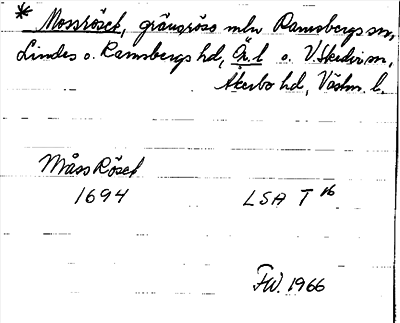 * Mossröset, gränsröse mln Ramsbergs sn,
Lindes o. Ramsbergs hd, Ör. l. o. V. Skedvi sn,
Åkerbo hd, Västm. l.
Måss Röset
1694 LSA T 16
FW. 1966